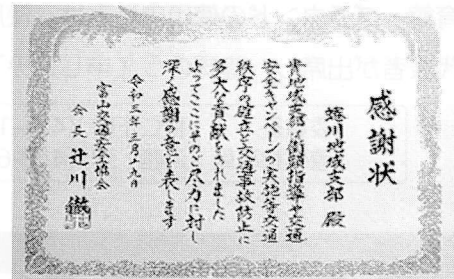 感謝状
蜷川地域支部 殿
貴地域支部は街頭指導や交通
安全キャンペーンの実施等交通
秩序の確立と交通事故防止に
多大な貢献をされました
よってここにそのご尽力に対し
深く感謝の意を表します
令和三年三月十九日
富山交通安全協会
会長 辻川徹